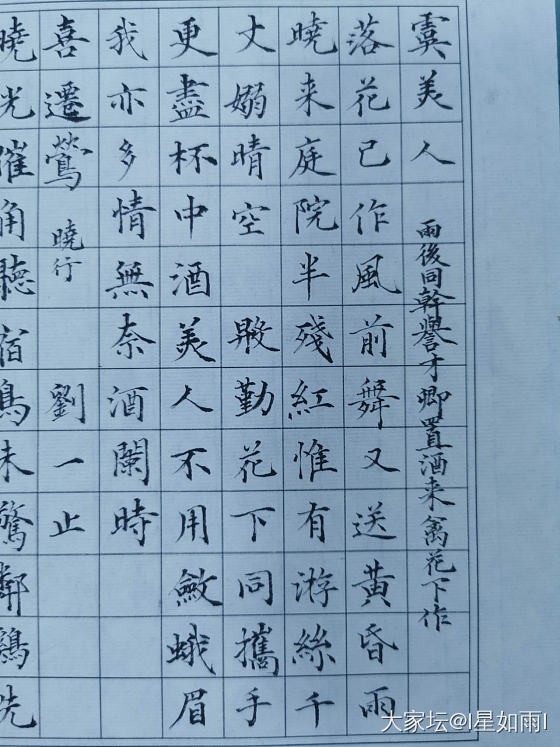 虞美人 雨後同幹譽才卿置酒来禽花下作
落花已作風前舞又送黃昏雨
曉来庭院半殘紅惟有游絲千
丈嫋晴空 殷勤花下同攜手
更盡杯中酒美人不用斂蛾眉
我亦多情無奈酒闌時
喜遷鶯 曉行 劉一止
曉光催角聽宿鳥未驚鄰鷄先
大家坛@I星如雨I